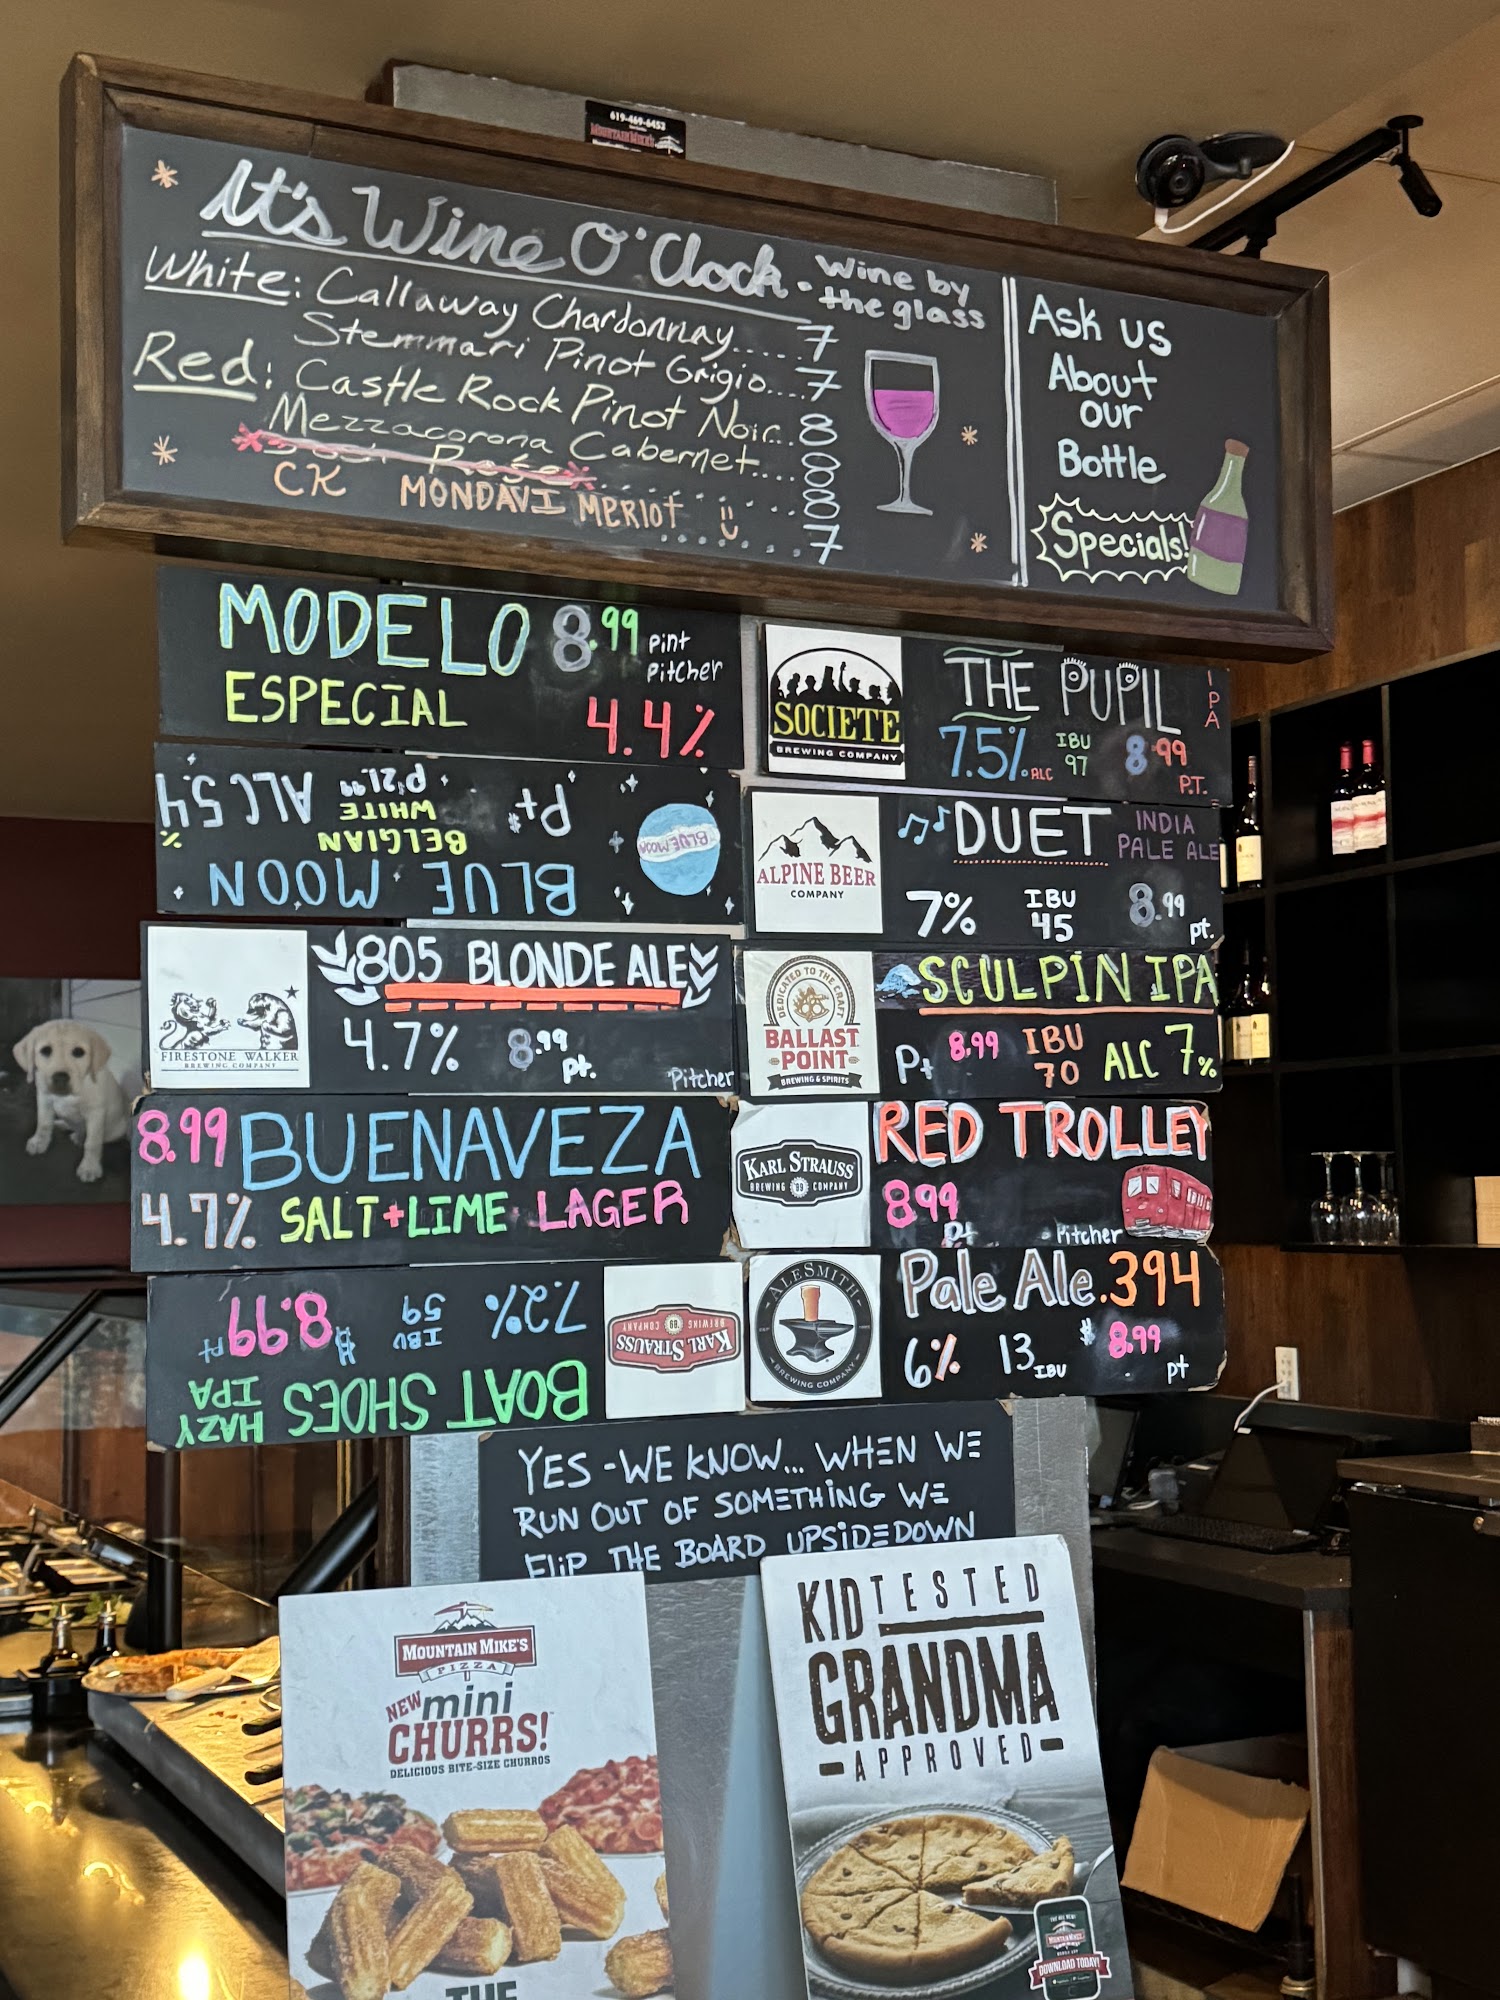 619-469-6453
MOUNTAIN MIKE'S
It's Wine O'Clock • Wine by the glass
White: Callaway Chardonnay..... 7
Stemmari Pinot Grigio.... 7
Red: Castle Rock Pinot Noir.. 8
Mezzacorona Cabernet.... 8
Rosé 8
CK MONDAVI MERLOT ....... 7
Ask us
About
our
Bottle
Specials!
MODELO 8.99 Pint
Pitcher
ESPECIAL 4.4%
BLUE MOON
BELGIAN
WHITE
P 21.99
ALC 5.4
%
Pt $
BLUE MOON
FIRESTONE WALKER
BREWING COMPANY
805 BLONDE ALE
4.7% 8.99 pt.
Pitcher
8.99 BUENAVEZA
4.7% SALT + LIME LAGER
BOAT SHOES HAZY
IPA
7.2% IBU
59
$8.99 pt
KARL STRAUSS
BREWING 89 COMPANY
SOCIETE
BREWING COMPANY
THE PUPIL IPA
7.5% ALC IBU
97 8.99
P.T.
ALPINE BEER
COMPANY
DUET INDIA
PALE ALE
7% IBU
45 8.99
pt.
DEDICATED TO THE CRAFT
BALLAST
POINT
BREWING & SPIRITS
SCULPIN IPA
Pt 8.99 IBU
70 ALC 7%
KARL STRAUSS
BREWING 89 COMPANY
RED TROLLEY
8.99
Pt Pitcher
ALESMITH
BREWING COMPANY
Pale Ale .394
6% 13 IBU $8.99
pt
YES - WE KNOW... WHEN WE
RUN OUT OF SOMETHING WE
FLIP THE BOARD UPSIDEDOWN
MOUNTAIN MIKE'S
PIZZA
NEW mini
CHURRS!
DELICIOUS BITE-SIZE CHURROS
THE
KID TESTED
GRANDMA
-APPROVED-
MOUNTAIN MIKE'S
DOWNLOAD TODAY!